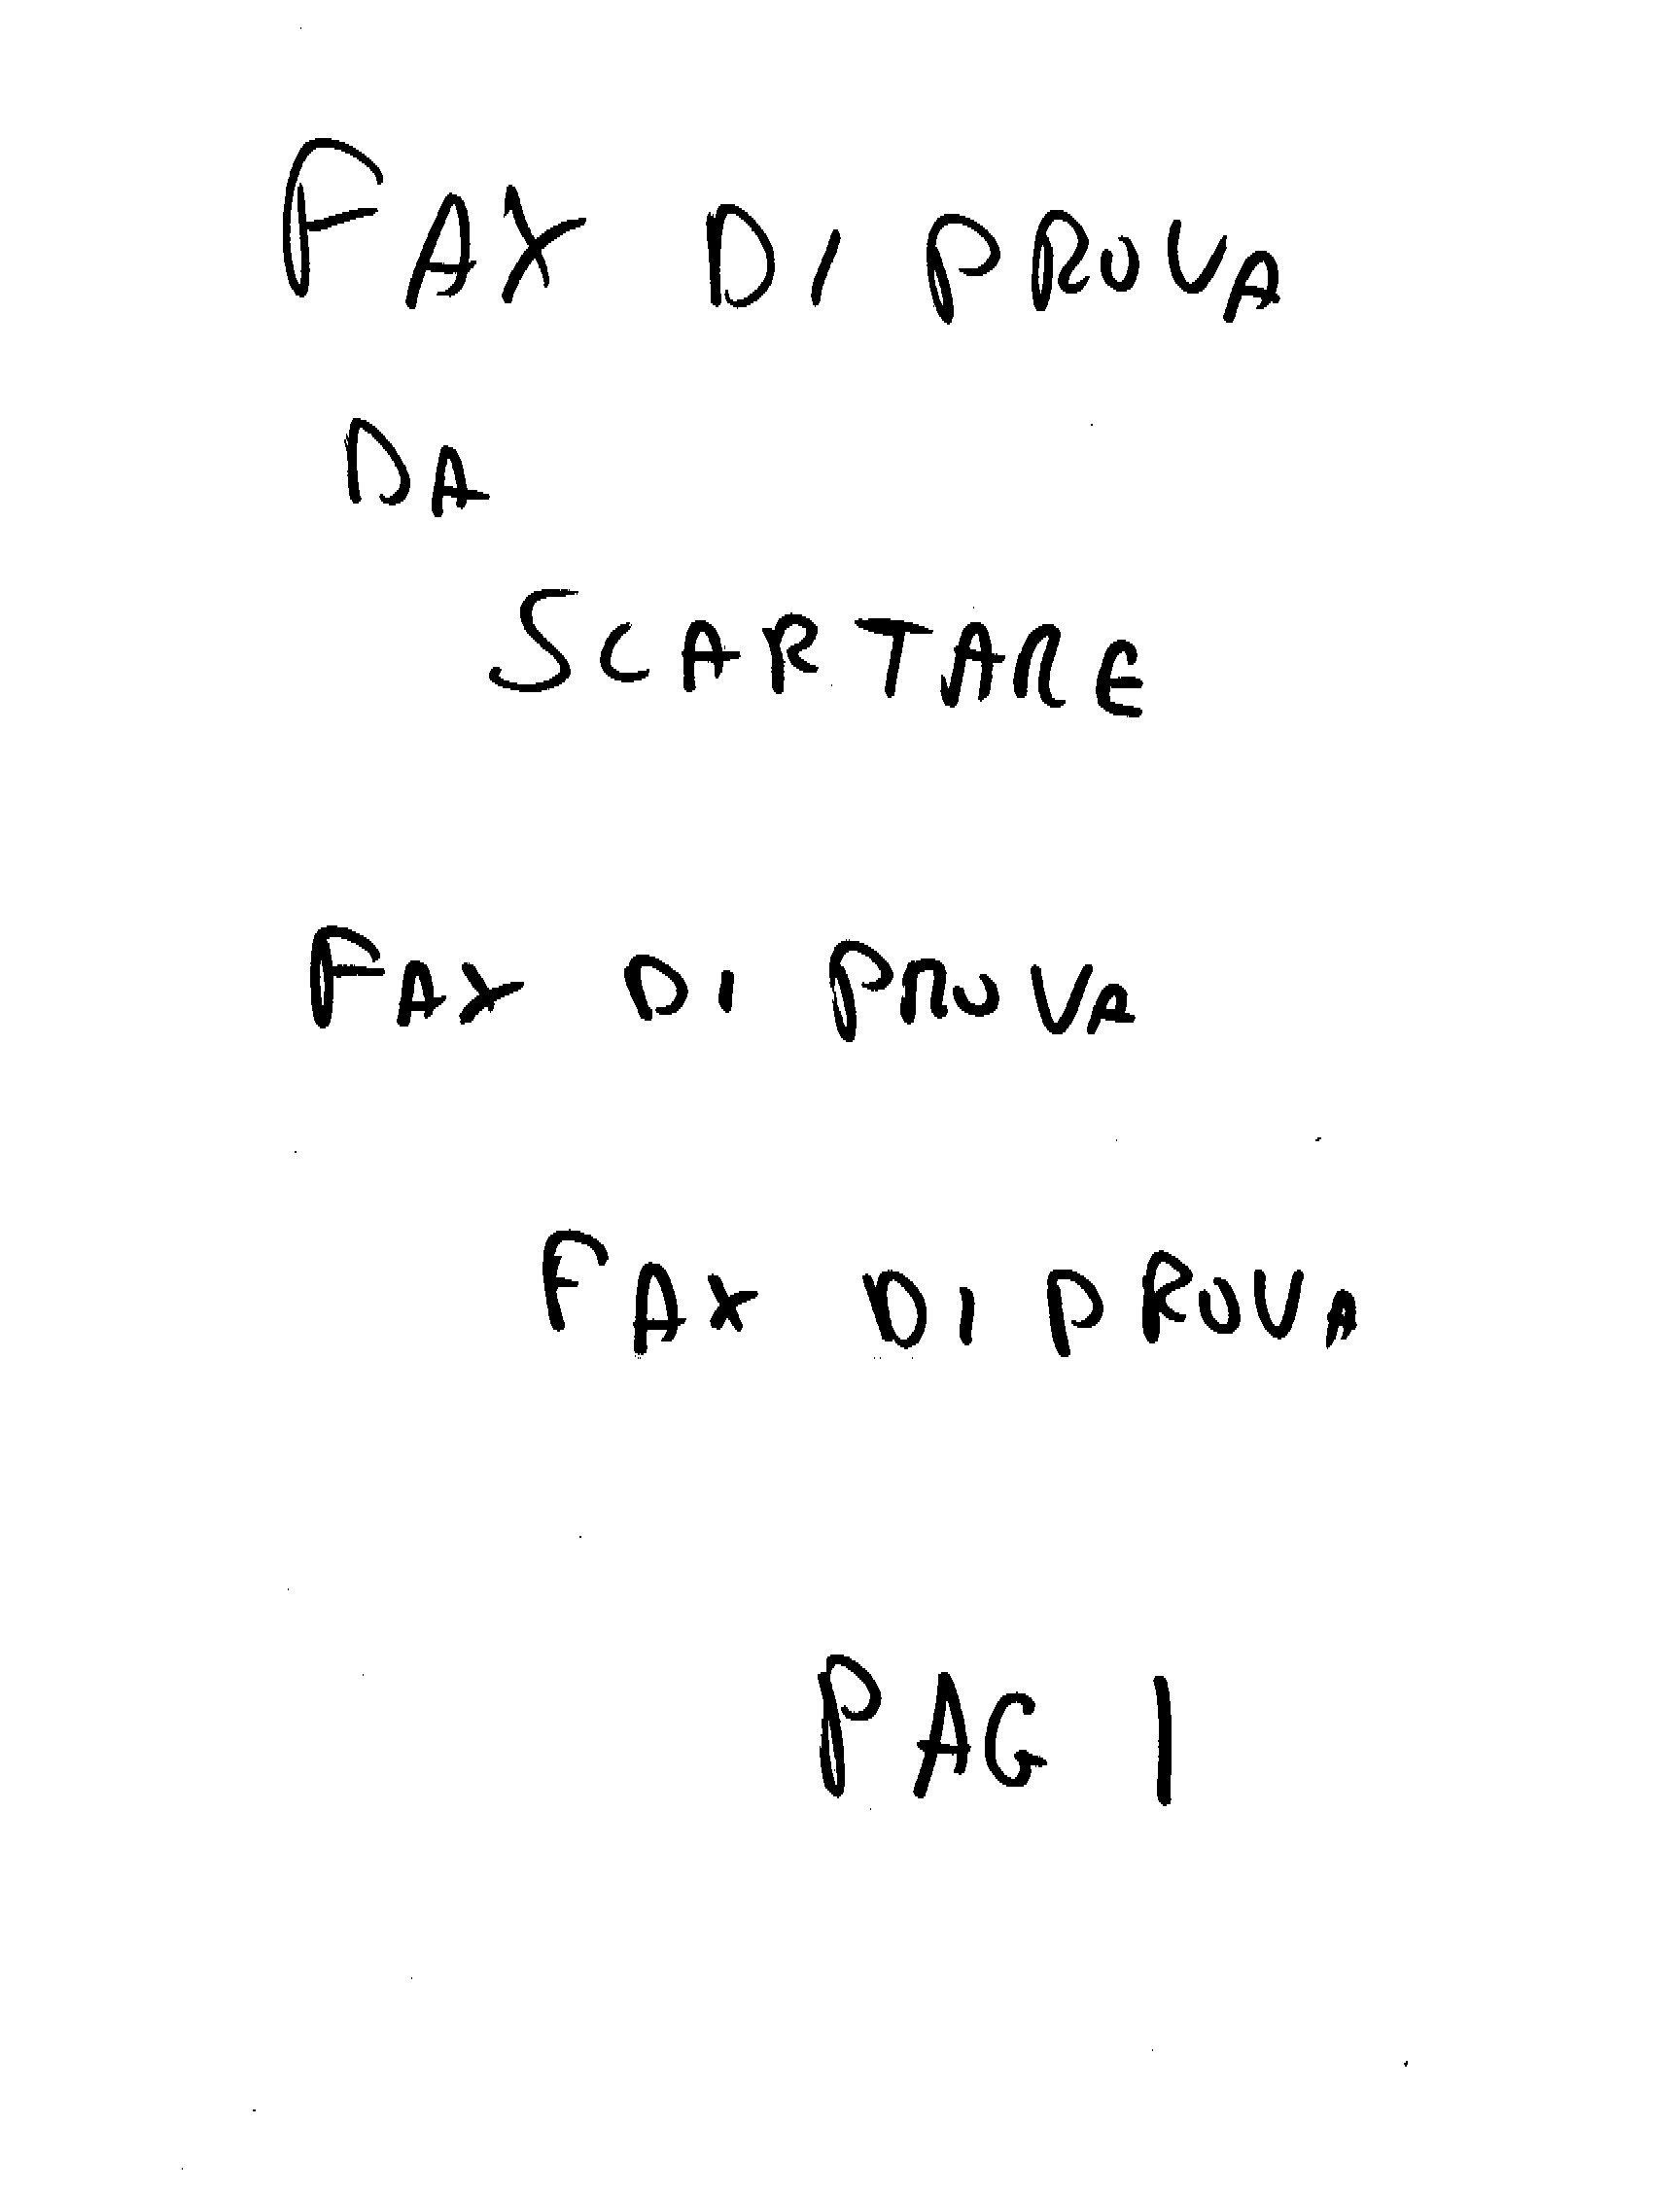 FAX DI PROVA
DA
SCARTARE
FAX DI PROVA
FAX DI PROVA
PAG 1